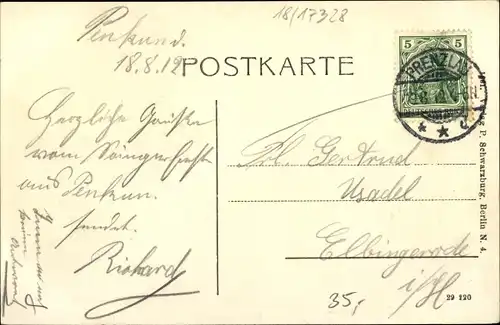 18/17328
Penkun d.
18.8.12
POSTKARTE
5 5
PRENZLAU
Herzliche Grüße
vom Sängerfeste
aus Penkun
sendet
Richard
Frl. Gertrud
Usadel
Elbingerode
i/H
35,-
Verlag P. Schwarzburg, Berlin N. 4.
29 120